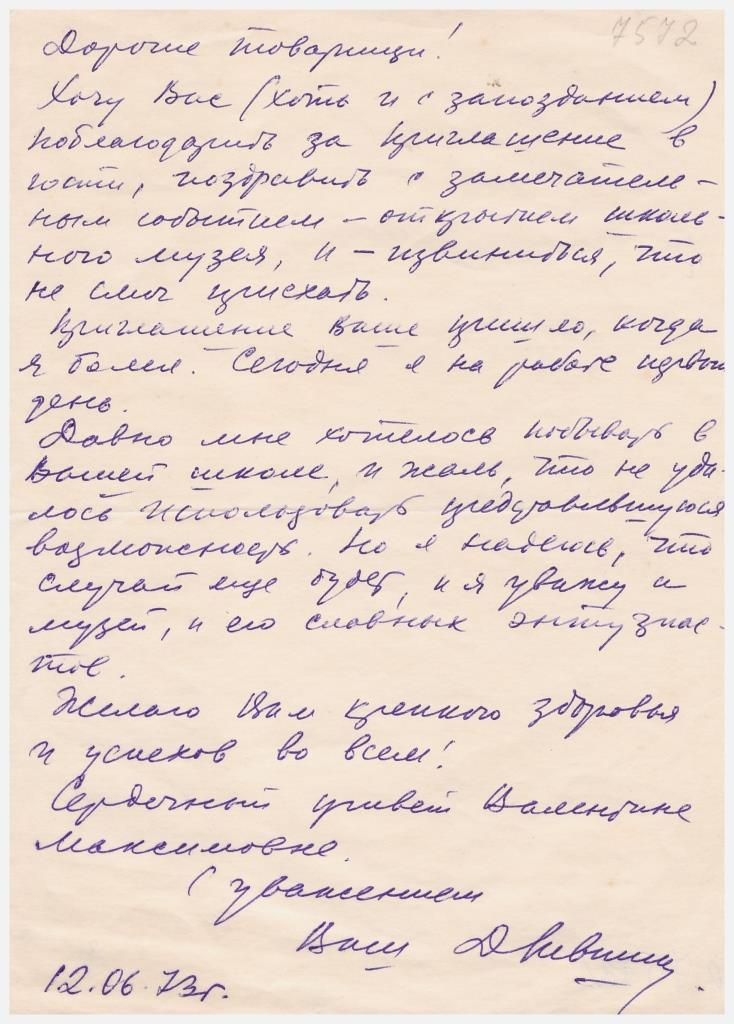 7572
Дорогие товарищи!
Хочу Вас (хоть и с запозданием)
поблагодарить за приглашение в
гости, поздравить с замечатель-
ным событием - открытием школь-
ного музея, и - извиниться, что
не смог приехать.
Приглашение Ваше пришло, когда
я болел. Сегодня я на работе первый
день.
Давно мне хотелось побывать в
Вашей школе, и жаль, что не уда-
лось использовать представившуюся
возможность. Но я надеюсь, что
случай еще будет, и я увижу и
музей, и его славных энтузиас-
тов.
Желаю Вам крепкого здоровья
и успехов во всем!
Сердечный привет Валентине
Максимовне.
С уважением
Ваш Д
12.06.73г.